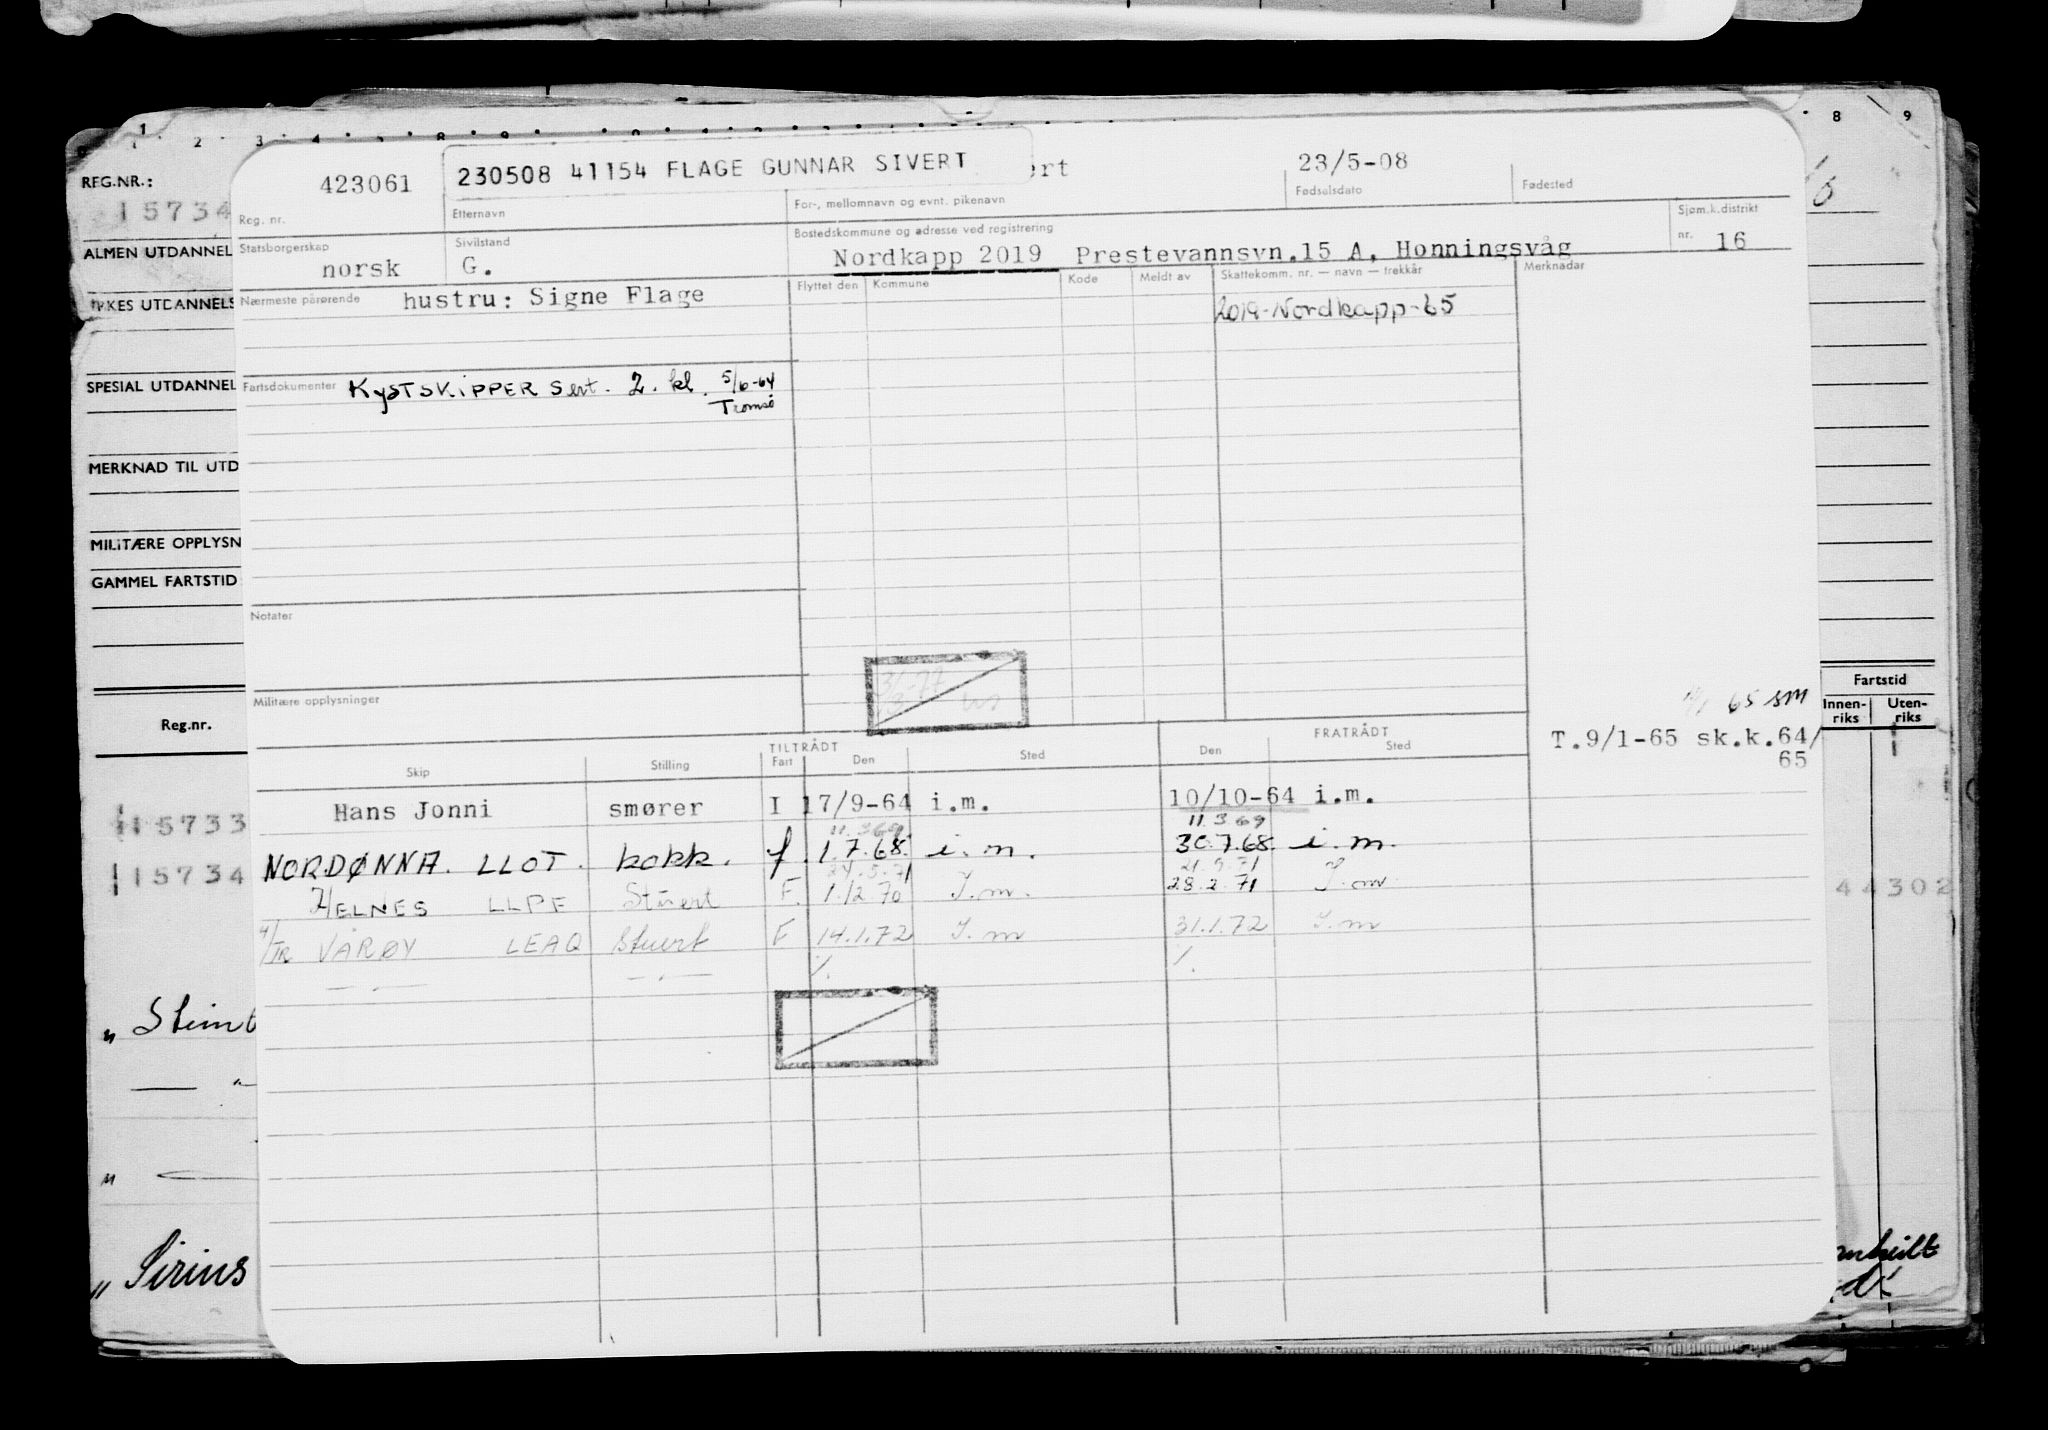 1 2 3 4 5 8 9 8 9
REG.NR.:
15734
ALMEN UTDANNEL
SPESIAL UTDANNEL
MERKNAD TIL UTD
MILITÆRE OPPLYSN
GAMMEL FARTSTID
Reg.nr.
115733
115734
" Steint
"
" Sirius
423061
Reg. nr.
230508 41154 FLAGE GUNNAR SIVERT
ert
Etternavn
For-, mellomnavn og evnt. pikenavn
23/5-08
Fødselsdato
Fødested
Statsborgerskap
norsk
Sivilstand
G.
Bostedskommune og adresse ved registrering
Nordkapp 2019 Prestevannsvn.15 A, Honningsvåg
Sjøm.k.distrikt
nr. 16
Nærmeste pårørende
hustru: Signe Flage
Flyttet den Kommune Kode Meldt av Skattekomm. nr. — navn — trekkår Merknader
2019-Nordkapp-65
Fartsdokumenter
KYSTSKIPPER Sert. 2. kl. 5/6-64
Tromsø
Notater
Militære opplysninger
65 SM
T.9/1-65 sk.k.64/
65
TILTRÅDT FRATRÅDT
Skip Stilling Fart Den Sted Den Sted
Hans Jonni smører I 17/9-64 i.m. 10/10-64 i.m.
11.3.69 11.3.69
NORDØNNA. LLOT. kokk. f. 1.7.68. i.m. 30.7.68. i.m.
24.5.71 21.9.71
HELNES LLPE Stuert F. 1.12.70 I.m. 28.2.71 I.m.
M/TR VÅRØY LEAQ Stuert F 14.1.72 I.m 31.1.72 I.m
— " — — " — %. %.
Fartstid
Innen-
riks
Uten-
riks
44302